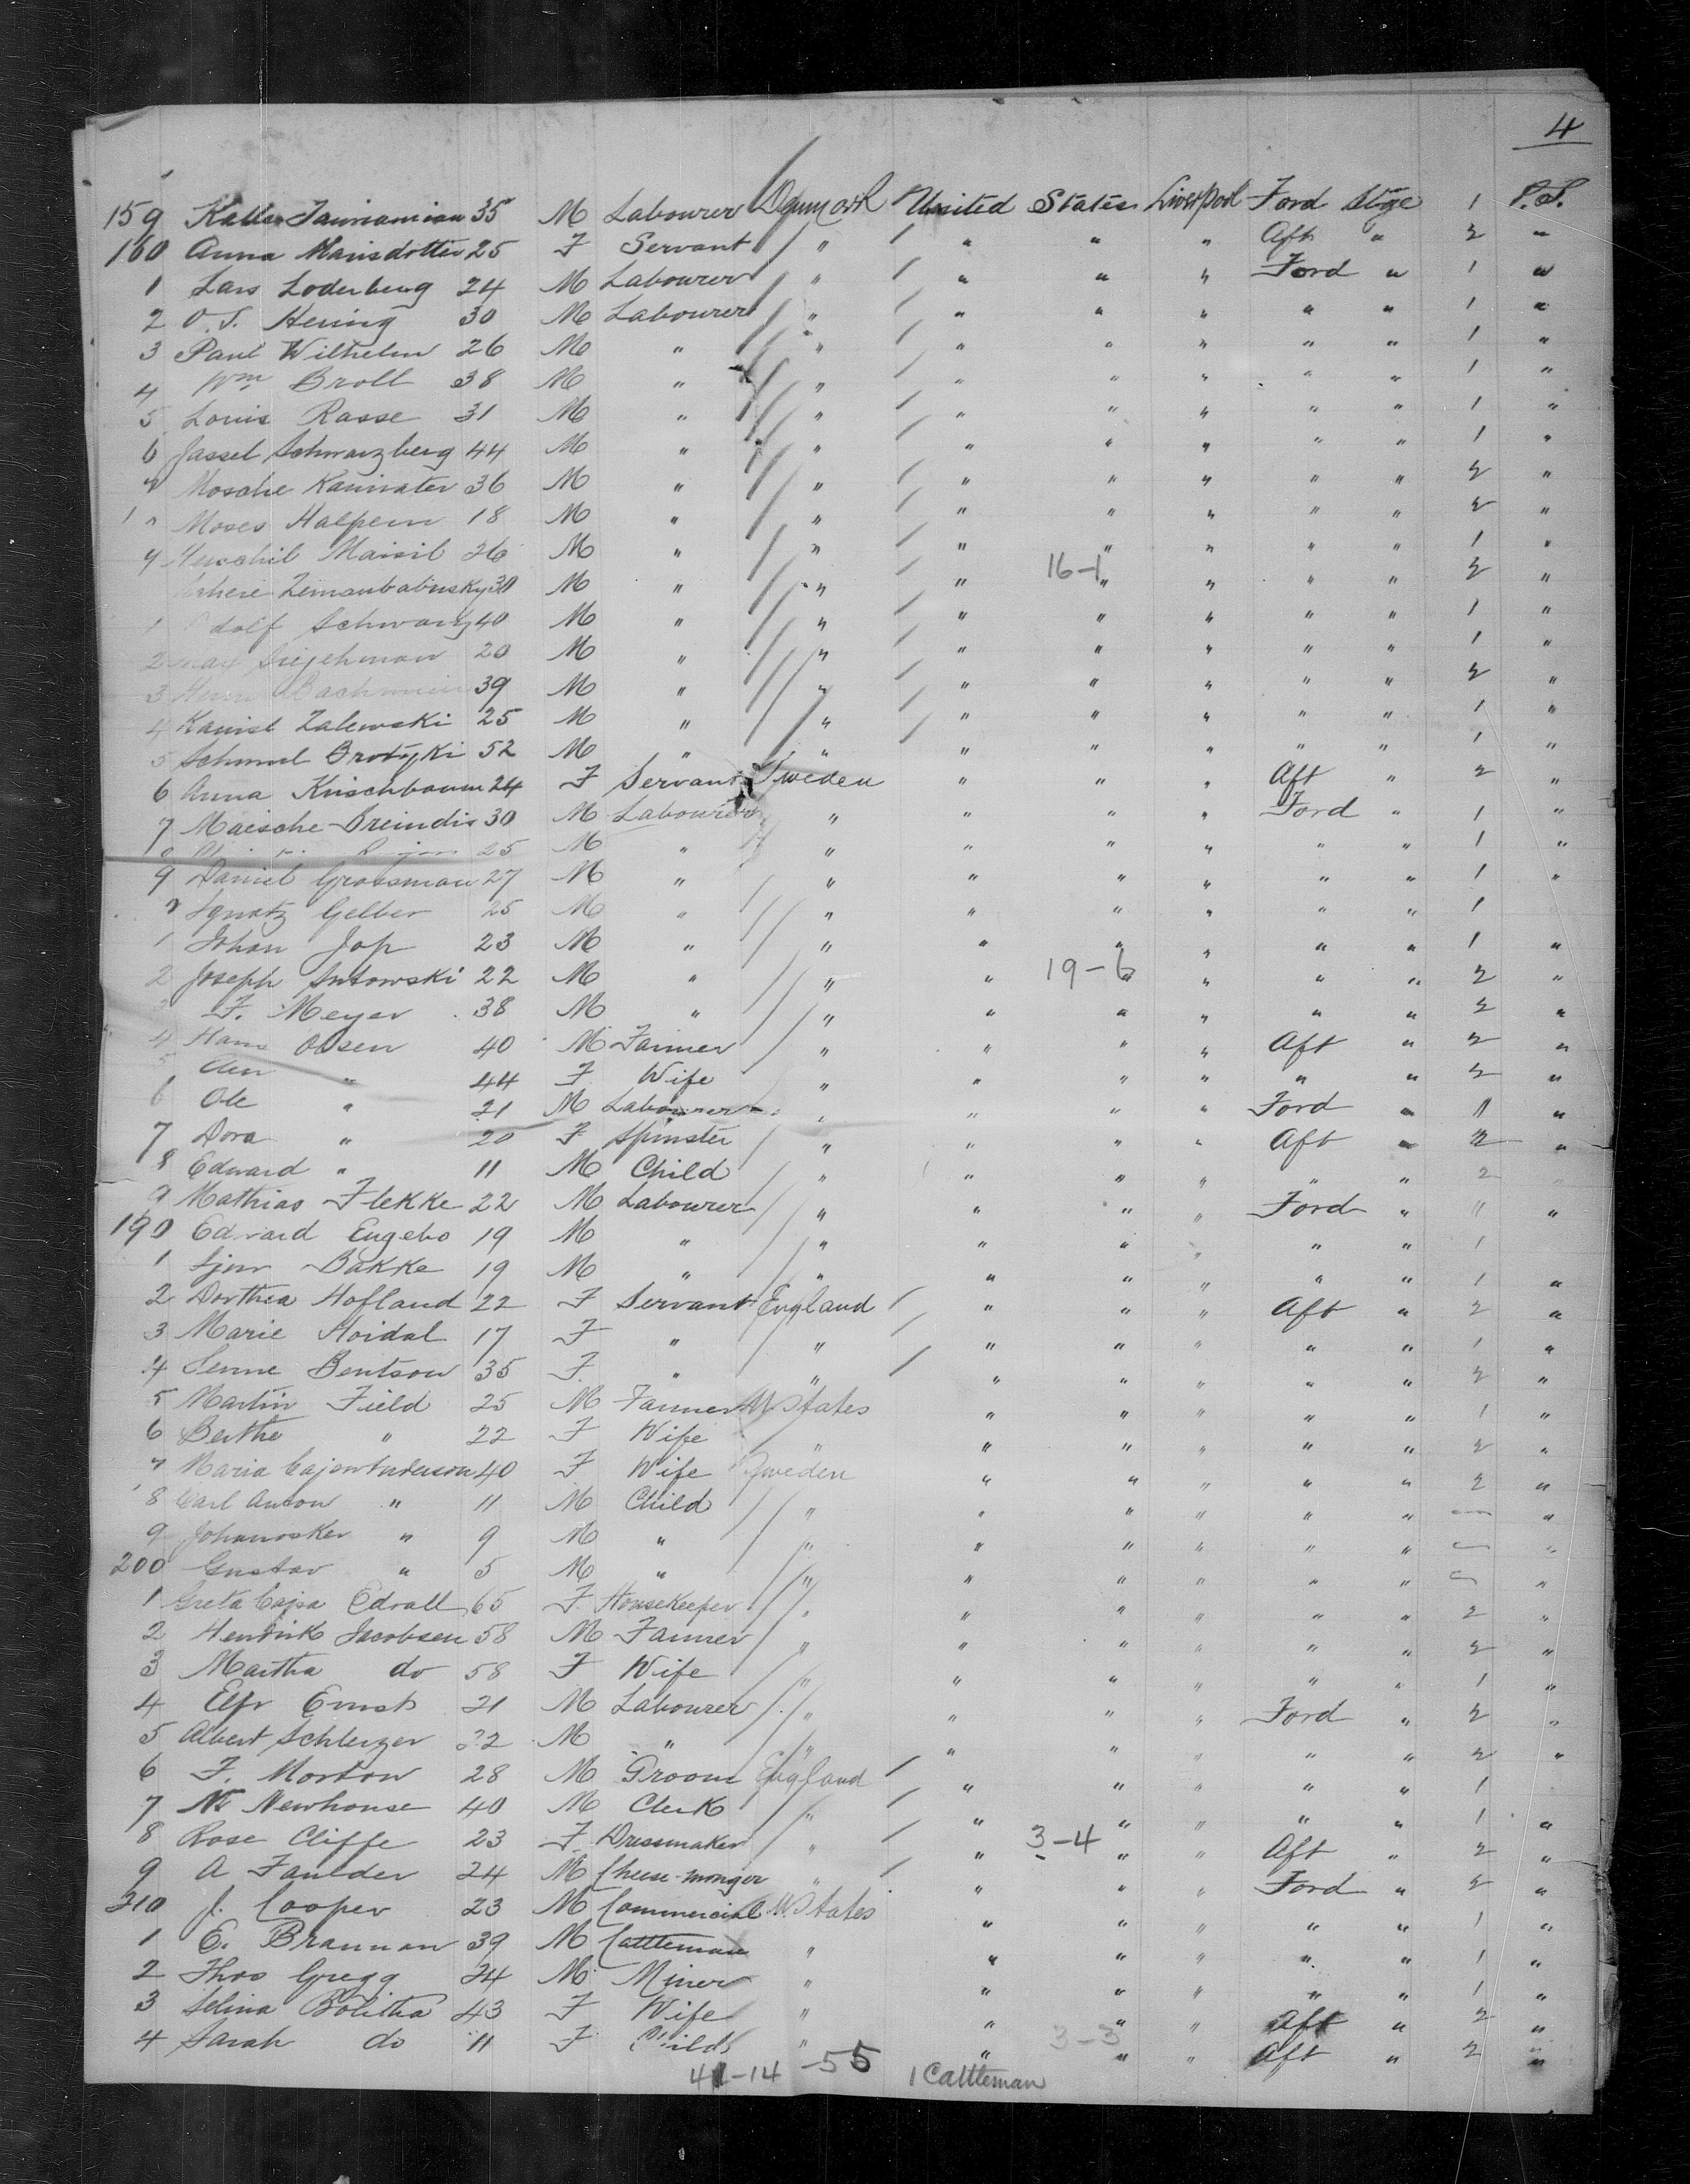 4
159 Kalle 35 M Labourer Denmark United States Liverpool Ford Stge 1 P.S.
160 Anna Mansdotter 25 F Servant " " " " Aft " 2 "
1 Lars Soderberg 24 M Labourer " " " " Ford " 1 "
2 O.S. Hering 30 M Labourer " " " " " " 1 "
3 Paul Wilhelm 26 M " " " " " " " 1 "
4 Wm Broll 38 M " " " " " " " 1 "
5 Louis Rasse 31 M " " " " " " " 1 "
6 Jassel Schwarzberg 44 M " " " " " " " 1 "
7 Mosche 36 M " " " " " " " 2 "
Moses Halpern 18 M " " " " " " " 2 "
9 Maisil 26 M " " " " " " " 1 "
30 M " " " 16-1 " " " " 2 "
1 dolf Schwartz 40 M " " " " " " " 1 "
2 20 M " " " " " " " 1 "
3 39 M " " " " " " " 2 "
4 Zalewski 25 M " " " " " " " 1 "
5 Schmul 52 M " " " " " " " 1 "
6 Anna Kirschbaum 24 F Servant Sweden " " " Aft " 2 "
7 Maesche Breindis 30 M Labourer " " " " Ford " 1 "
25 M " " " " " " " 1 "
9 Daniel Grossman 27 M " " " " " " " 1 "
Ignatz Gelber 25 M " " " " " " " 1
1 Johan Jop 23 M " " " " " " " 1 "
2 Joseph 22 M " " " 19-6 " " " " 2 "
F. Meyer 38 M " " " " " " " 2 "
4 Hans Olsen 40 M Farmer " " " " Aft " 2 "
5 " 44 F Wife " " " " " " 2 "
6 Ole " 21 M Labourer " " " " Ford " 11 "
7 Dora " 20 F Spinster " " " " Aft " 2 "
8 Edward " 11 M Child " " " " " " 2 "
9 Mathias Flekke 22 M Labourer " " " " Ford " 11 "
190 Edward Engebo 19 M " " " " " " " 1
1 Bakke 19 M " " " " " " " 1 "
2 Dorthea Hofland 22 F Servant England " " " Aft " 2 "
3 Marie Hoidal 17 F " " " " " " " 1 "
4 Bentson 35 F " " " " " " " 2 "
5 Martin Field 25 M Farmer U. States " " " " " 1 "
6 Berthe " 22 F Wife " " " " " " 2 "
7 Maria Cajsa Anderson 40 F Wife Sweden " " " " " 2 "
8 Carl Anton " 11 M Child " " " " " " — "
9 Johanosker " 9 M " " " " " " " — "
200 Gustav " 5 M " " " " " " " — "
1 Greta Cajsa Edvall 65 F Housekeeper " " " " " " 2 "
2 Henrik Jacobsen 58 M Farmer " " " " " " 2 "
3 Martha do 58 F Wife " " " " " " 1 "
4 Ernst 21 M Labourer " " " " Ford " 2 "
5 Albert Schlerzer 22 M " " " " " " " 2 "
6 F. Morton 28 M Groom England " " " " " 1
7 Newhouse 40 M Clerk " " " " " " 1 "
8 Rose Cliffe 23 F Dressmaker " " 3-4 " " Aft " 2 "
9 A Faulder 24 M Cheese-monger " " " " Ford " 2 "
210 J. Cooper 23 M Commercial U. States " " " " " 1 "
1 E. Brannan 39 M Cattleman " " " " " " 1 "
2 Thos Gregg 24 M Miner " " " " " " 1 "
3 Selina Bolitha 43 F Wife " " " " Aft " 2 "
4 Sarah do 11 F Child " " 3-3 " " Aft " 2 "
41-14 -55 1 Cattleman